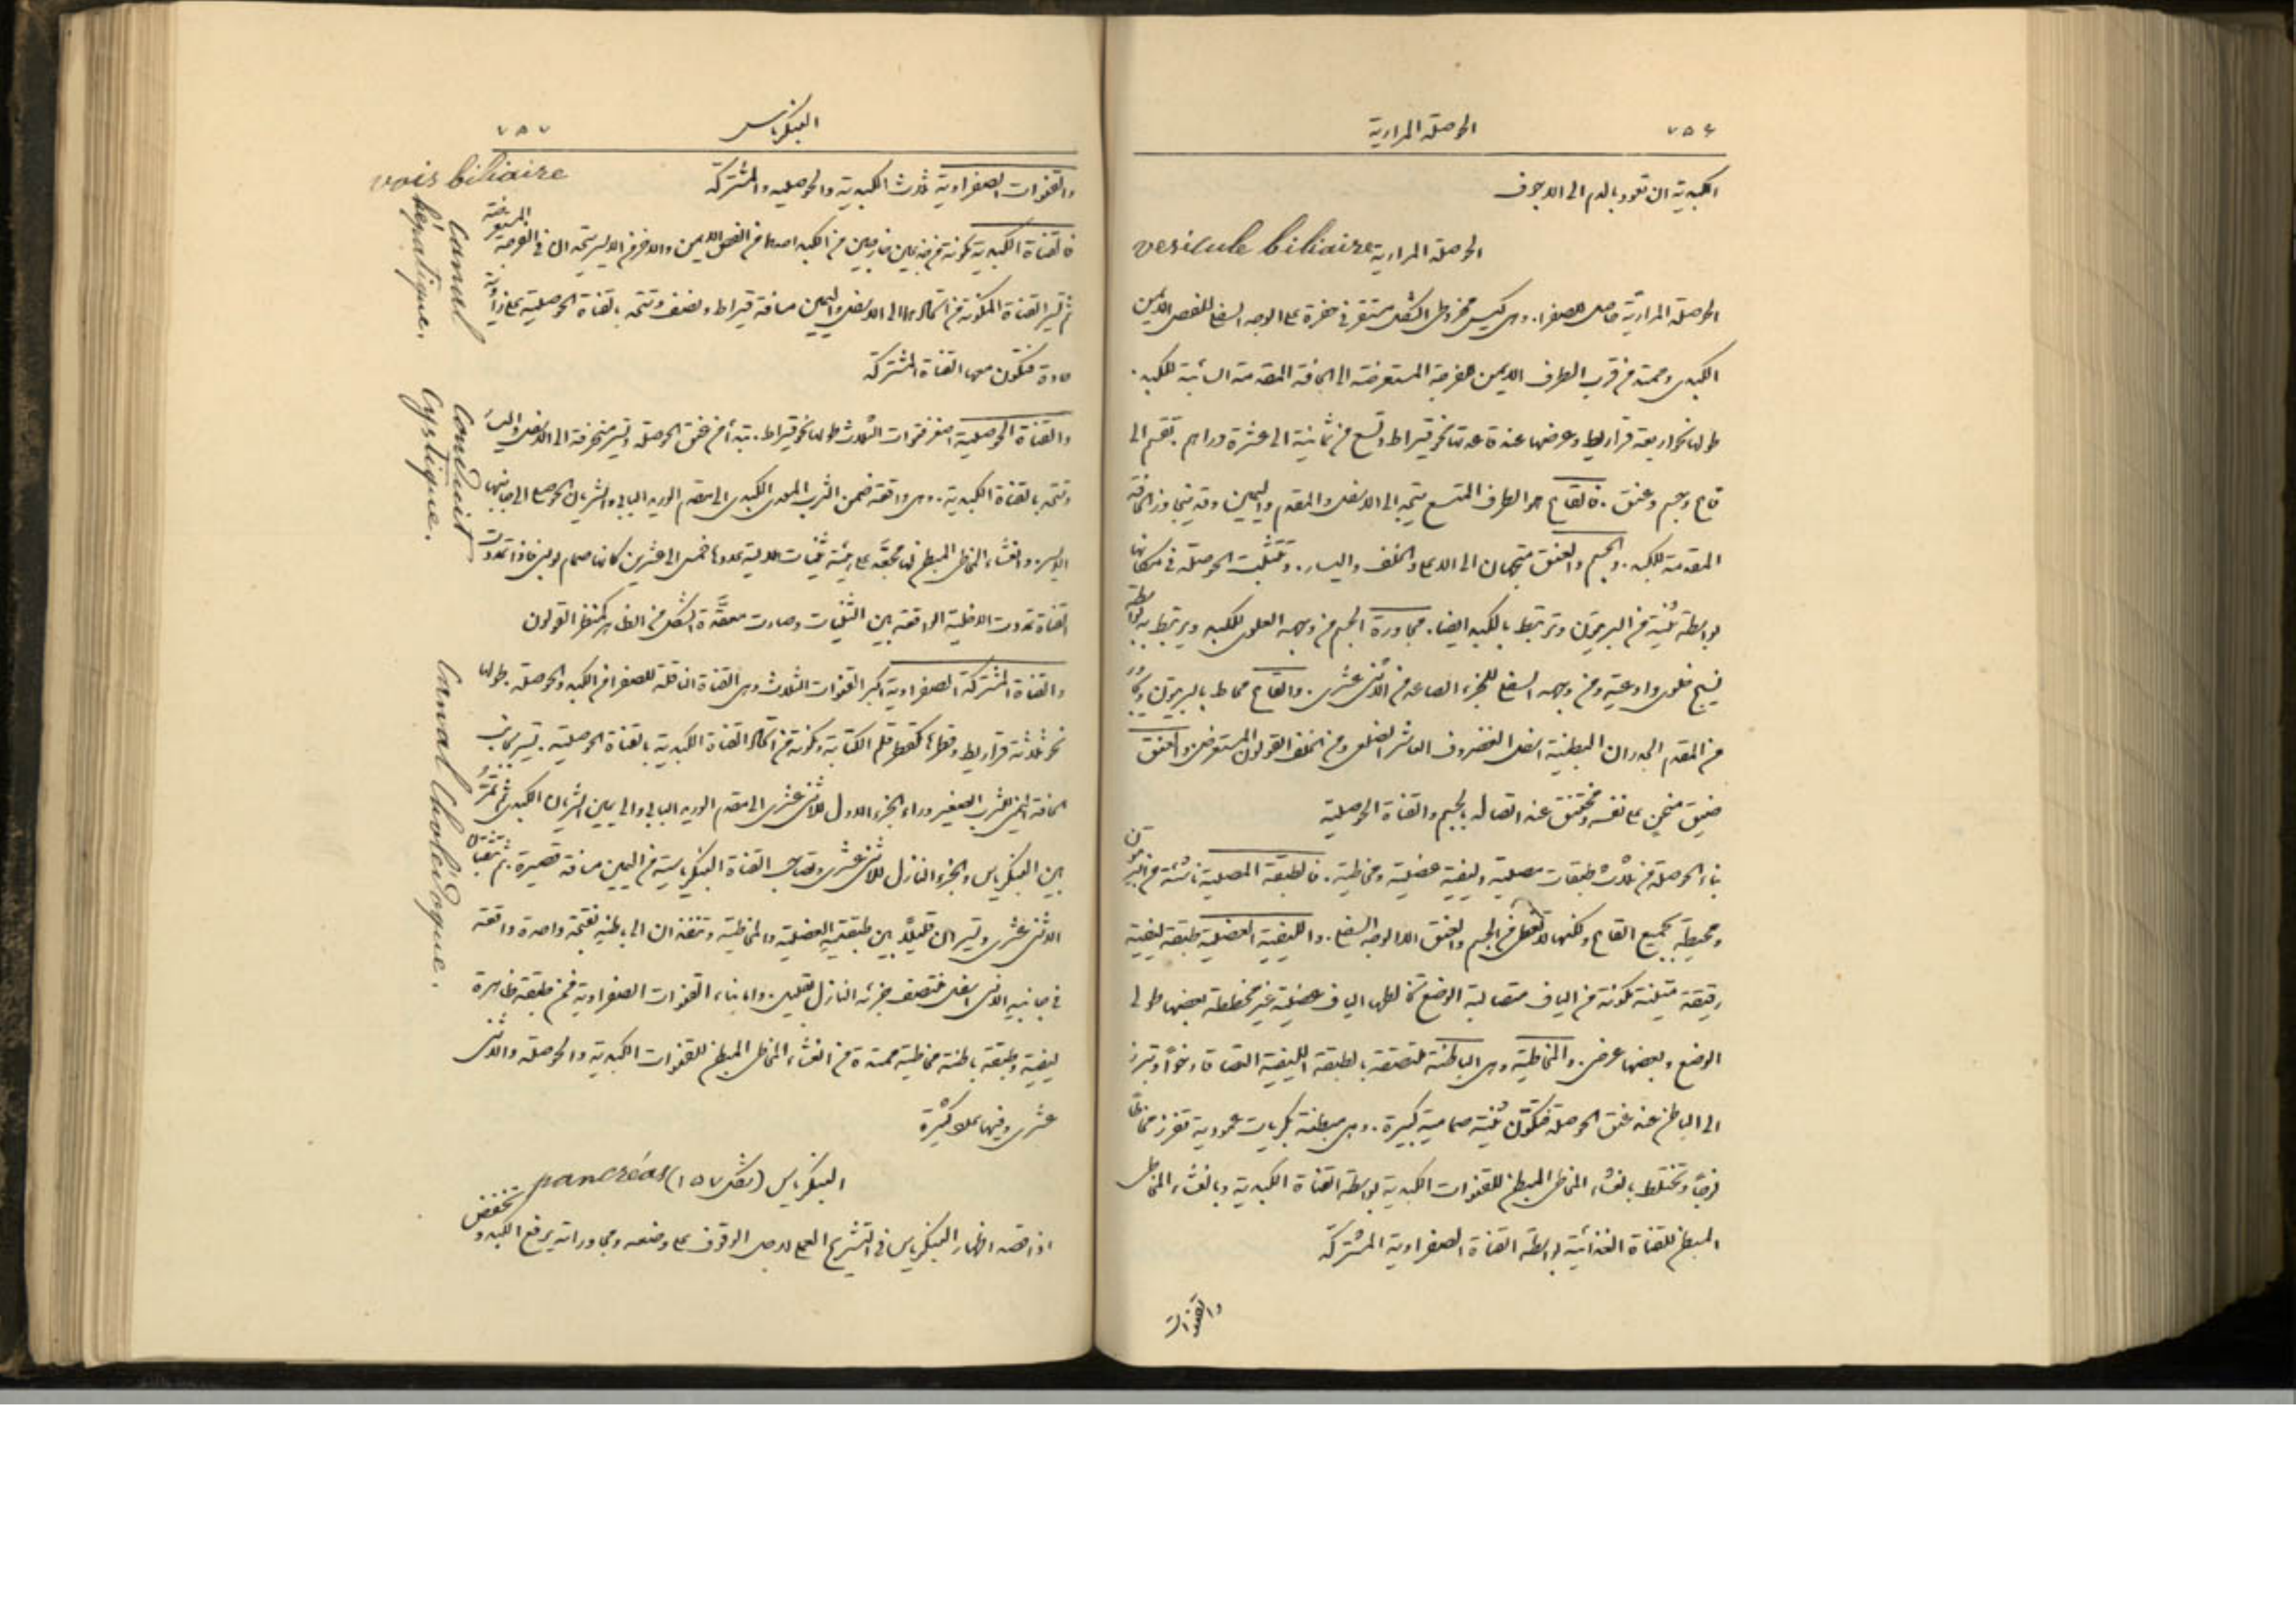 ٧٥٦
الحوصلة المرارية
الكبدية ان تعود بالدم الى الاجوف
الحوصلة المرارية vesicule biliaire
الحوصلة المرارية حاصل للصفرا. وهى كيس مخروطى الشكل مستقر فى حفرة على الوجه السفلى للفص الايمن
الكبدى وممتد من قرب الطرف الايمن للفرجة المستعرضة الى الحافة المقدمة السائبة للكبد.
طولها نحو اربعة قراريط وعرضها عند قاعدتها نحو قيراط وتسع من ثمانية الى عشرة دراهم. تقسم الى
قاع وجسم وعنق. فالقاع هو الطرف المتسع يتجه الى الاسفل والمقدم واليمين وقد يتجاوز الحافة
المقدمة للكبد. والجسم والعنق متجهان الى الاعلى والخلف واليسار. وتتثبت الحوصلة فى مكانها
بواسطة ثنية من البريتون وترتبط بالكبد ايضا. مجاورة الجسم من وجهه العلوى للكبد ويرتبط به بواسطة
نسيج خلوى واوعية ومن وجهه السفلى للجزء الصاعد من الاثنى عشرى. والقاع محاط بالبريتون ويجاور
من المقدم الجدران البطنية اسفل الغضروف العاشر الضلعى ومن الخلف القولون المستعرض. والعنق
ضيق منحن على نفسه ومختنق عند اتصاله بالجسم والقناة الحوصلية
بناء الحوصلة من ثلاث طبقات مصلية وليفية عضلية ومخاطية. فالطبقة المصلية ناشئة من البريتون
ومحيطة بجميع القاع ولكنها لا تغطى من الجسم والعنق الا الوجه السفلى. والليفية العضلية طبقة ليفية
رقيقة متينة مكونة من الياف متصالبة الوضع تخالطها الياف عضلية غير مخططة بعضها طولى
الوضع وبعضها عرضى. والمخاطية وهى الباطنة ملتصقة بالطبقة الليفية التصاقا رخوًا وتبرز
الى الباطن عند عنق الحوصلة فتكوّن ثنية صمامية كبيرة. وهى مبطنة بكريات عمودية تفرز مخاطًا
لزجًا وتختلط بالغشاء المخاطى المبطن للقنوات الكبدية بواسطة القناة الكبدية وبالغشاء المخاطى
المبطن للقناة الغذائية بواسطة القناة الصفراوية المشتركة
والقنوات
٧٥٧
البنكرياس
والقنوات الصفراوية ثلاث الكبدية والحوصلية والمشتركة
vois biliaire
فالقناة الكبدية مكونة من جذعين خارجين من الكبد احدهما من الفص الايمن والاخر من الايسر يتحدان فى الفرجة المستعرضة
ثم تسير القناة المكونة من اتحادهما الى الاسفل واليمين مسافة قيراط ونصف وتتحد بالقناة الحوصلية على زاوية
حادة فتكون معها القناة المشتركة
canal hépatique.
والقناة الحوصلية اصغر القنوات الثلاث طولها نحو قيراط. تبدأ من عنق الحوصلة وتسير منحرفة الى الاسفل واليسار
وتتحد بالقناة الكبدية. وهى واقعة ضمن الثرب المعدى الكبدى الى مقدم الوريد البابى والشريان الحوصلى الى جانبها
الايسر. والغشاء المخاطى المبطن لها مجعّد على هيئة ثنيات هلالية عددها خمس الى عشرين كانها صمام لولبى فاذا تمددت
القناة تمددت الاخلية الواقعة بين الثنيات وصارت معقّدة الشكل من الظاهر كمنظر القولون
conduit cystique.
والقناة المشتركة الصفراوية اكبر القنوات الثلاث وهى القناة الناقلة للصفرا من الكبد والحوصلة. طولها
نحو ثلاثة قراريط وقطرها كقطر قلم الكتابة ومكونة من اتحاد القناة الكبدية بالقناة الحوصلية. تسير بجانب
الحافة اليمنى للثرب الصغير وراء الجزء الاول للاثنى عشرى الى مقدم الوريد البابى والى يمين الشريان الكبدى ثم تمرّ
بين البنكرياس والجزء النازل للاثنى عشرى وتصاحب القناة البنكرياسية من اليمين مسافة قصيرة. ثم تثقبان
الاثنى عشرى وتسيران قليلًا بين طبقتيه العضلية والمخاطية وتنفذان الى باطنه بفتحة واحدة واقعة
فى جانبه الانسى اسفل منتصف جزئه النازل بقليل. واما بناء القنوات الصفراوية فمن طبقة ظاهرة
ليفية وطبقة باطنة مخاطية ممتدة من الغشاء المخاطى المبطن للقنوات الكبدية والحوصلة والاثنى
عشرى وفيها غدد كثيرة
canal cholédoque.
البنكرياس (شكل ١٥٧) pancréas
اذا قصد اظهار البنكرياس فى التشريح العملى لاجل الوقوف على وضعه ومجاوراته يرفع الكبد وتخفض